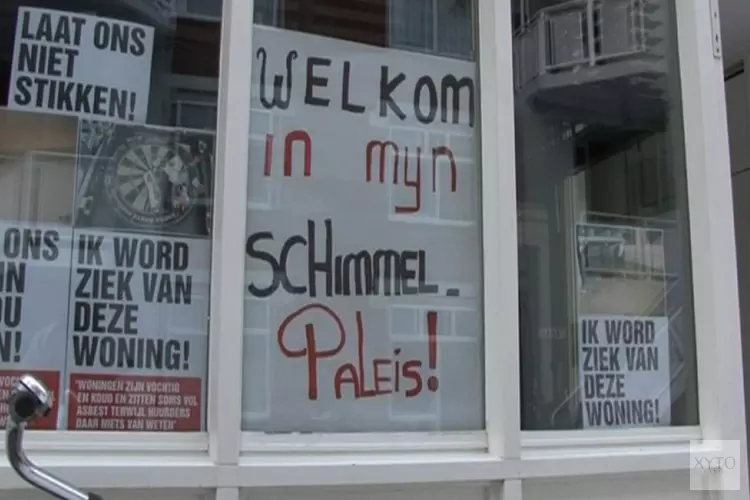 LAAT ONS
NIET
STIKKEN!
ONS
IK WORD
ZIEK VAN
DEZE
WONING!
'WONINGEN ZIJN VOCHTIG
EN KOUD EN ZITTEN SOMS VOL
ASBEST TERWIJL HUURDERS
DAAR NIETS VAN WETEN'
WELKOM
in mijn
SCHIMMEL-
PALEIS!
IK WORD
ZIEK VAN
DEZE
WONING!
XYTO